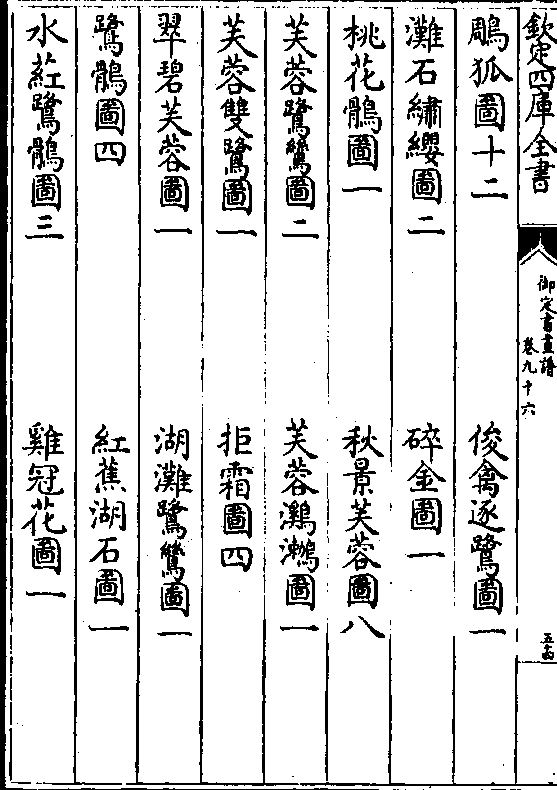 欽定四庫全書
御定書畫譜
卷九十六
五十四
鵰狐圖十二　俊禽逐鷺圖一
灘石繡纓圖二　碎金圖一
桃花鶻圖一　秋景芙蓉圖八
芙蓉鷺鷥圖二　芙蓉鸂鶒圖一
芙蓉雙鷺圖一　拒霜圖四
翠碧芙蓉圖一　湖灘鷺鷥圖一
鷺鶻圖四　紅蕉湖石圖一
水葒鷺鶻圖三　雞冠花圖一